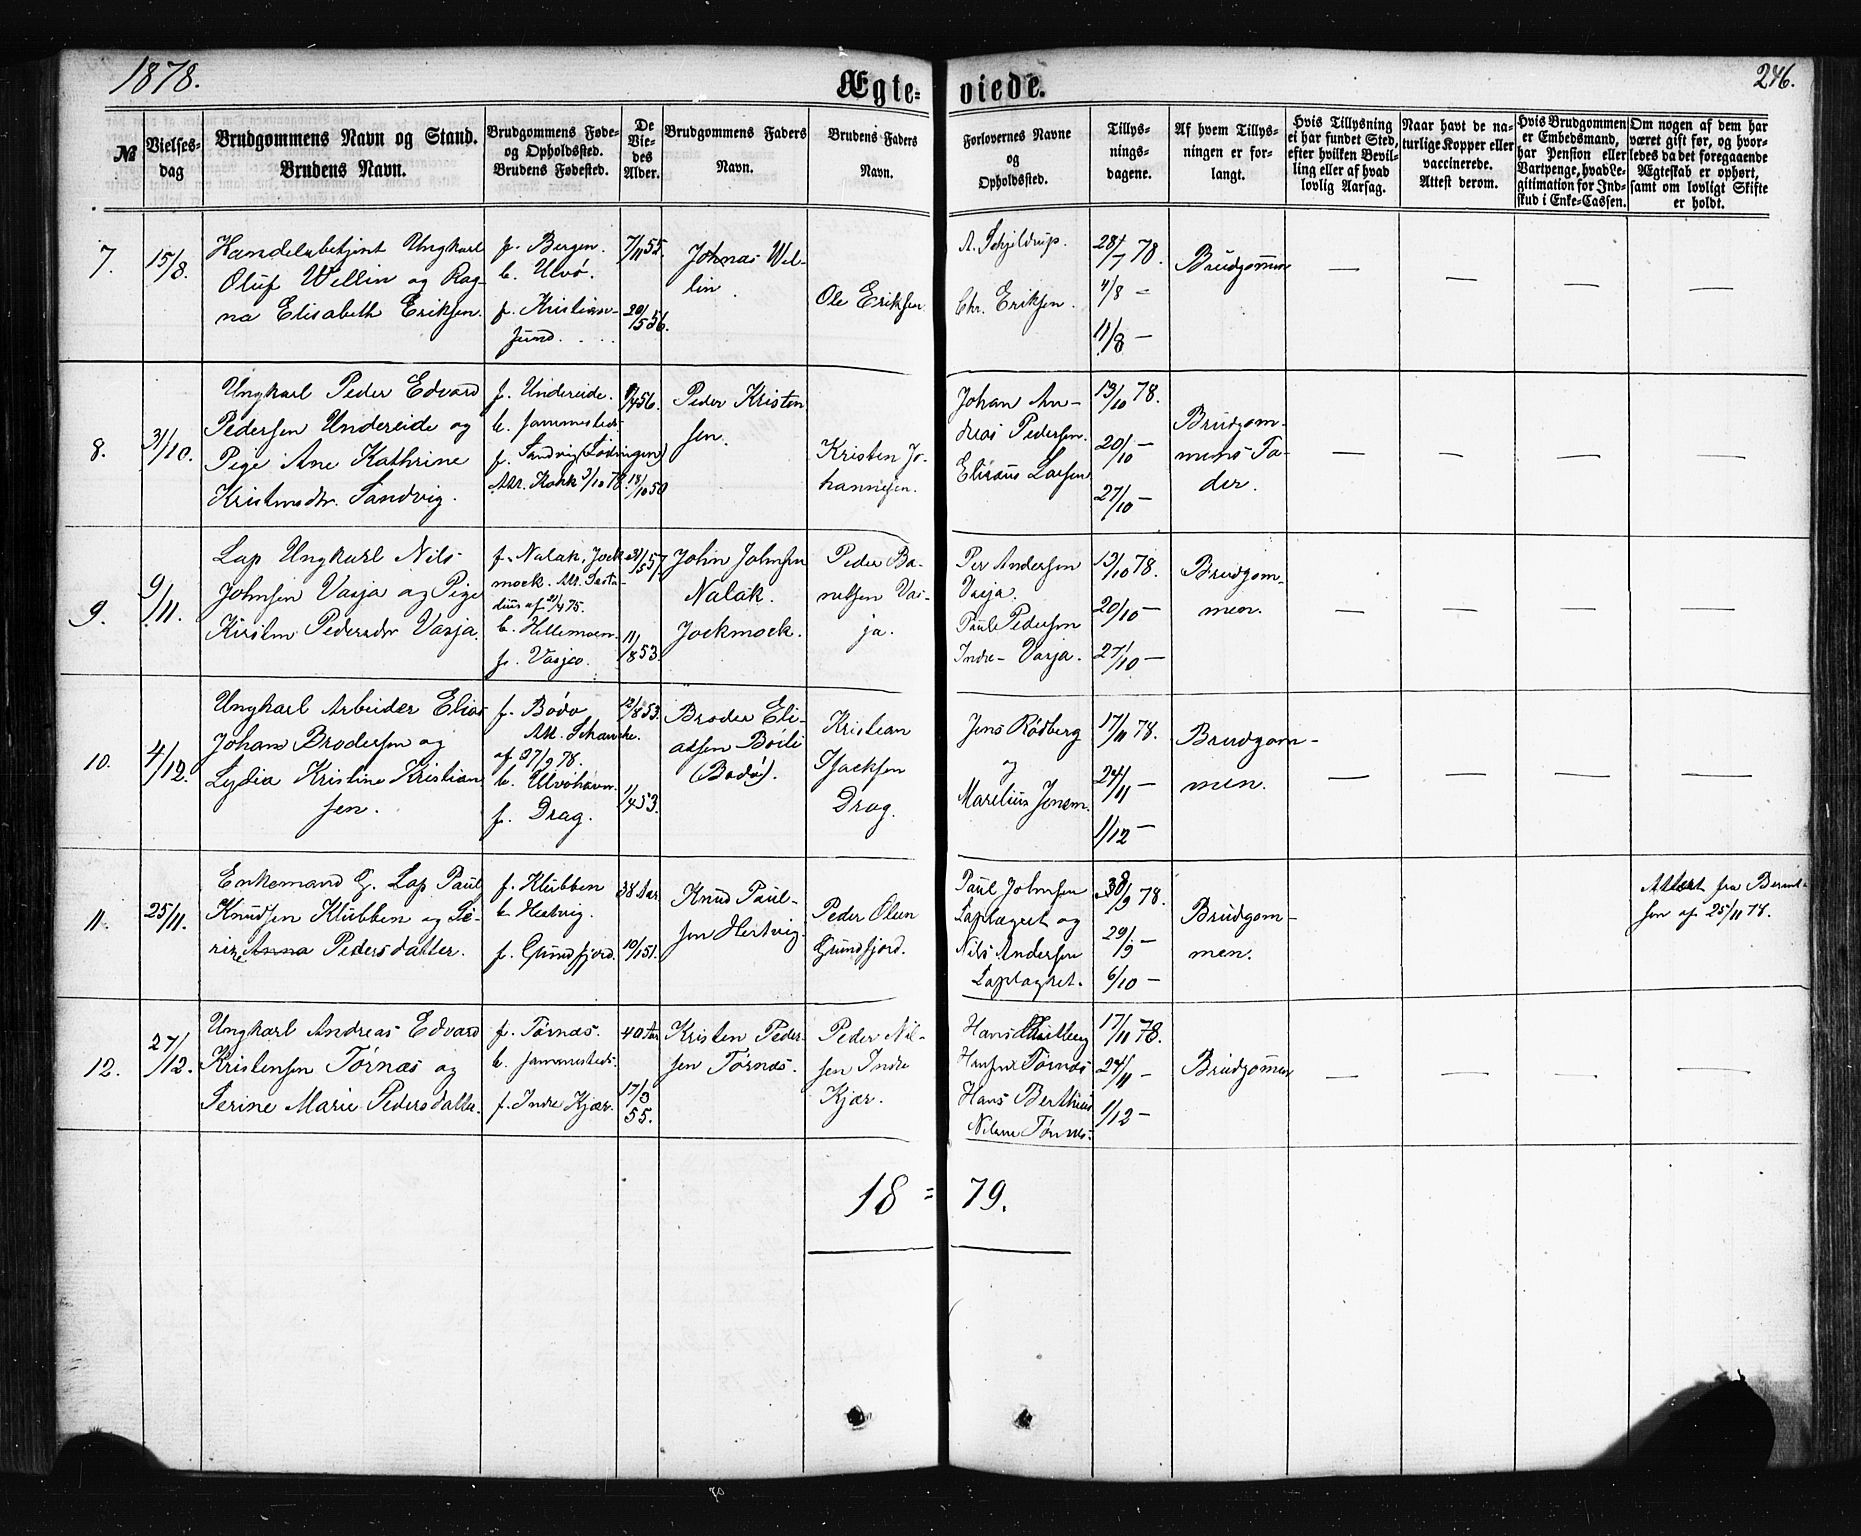 1878.
Ægte-
viede.
246.
№
Vielses-
dag
Brudgommens Navn og Stand.
Brudens Navn.
Brudgommens Føde-
og Opholdssted.
Brudens Fødested.
De
Vie-
des
Alder.
Brudgommens Faders
Navn.
Brudens Faders
Navn.
Forlovernes Navne
og
Opholdssted.
Tillys-
nings-
dagene.
Af hvem Tillys-
ningen er for-
langt.
Hvis Tillysning
ei har fundet Sted,
efter hvilken Bevil-
ling eller af hvad
lovlig Aarsag.
Naar havt de na-
turlige Kopper eller
vaccinerede.
Attest derom.
Hvis Brudgommen
er Embedsmand,
har Pension eller
Vartpenge, hvad Le-
gitimation for Ind-
skud i Enke-Cassen.
Om nogen af dem har
været gift før, og hvor-
ledes da det foregaaende
Ægteskab er ophørt,
samt om lovligt Skifte
er holdt.
7.
15/8.
Handelsbetjent Ungkarl
Oluf Wellin og Rag-
na Elisabeth Eriksen.
f. Bergen.
b. Ulvø.
f. Kristian-
sund.
7/11 55.
20/1 556.
Johnas Wel-
lin.
Ole Eriksen
A. Schjeldrup.
Chr. Eriksen.
28/7 78.
4/8 -
11/8 -
Brudgommen
— — — —
8.
31/10.
Ungkarl Peder Edvard
Pedersen Undereide og
Pige Ane Kathrine
Kristensdtr. Sandvig.
f. Undereide.
b. sammesteds.
f. Sandvig (Lødingen)
Att. Kokk 3/10 78.
/4 56.
18/10 50
Peder Kristen
sen.
Kristen Jo-
hannesen.
Johan An-
dreas Pedersen.
Elisæus Larsen
13/10 78.
20/10 -
27/10 -
Brudgom-
mens Fa-
der.
— — — —
9.
9/11.
Lap Ungkarl Nils
Johnsen Vasja og Pige
Kirsten Pedersdtr Vasja.
f. Nalak, Jock-
mock. Att.
af 2/4 75.
b. Hellemoen.
f. Vasja.
/5 57.
11/8 53.
John Johnsen
Nalak.
Jockmock.
Peder Da-
nelsen Vas-
ja.
Per Andersen
Vasja.
Paul Pedersen
Indre- Vasja.
13/10 78.
20/10 -
27/10 -
Brudgom-
men.
— — — —
10.
4/12.
Ungkarl Arbeider Elias
Johan Brodersen og
Lydia Kristine Kristian
sen.
f. Bodø
Att. Schancke.
af 27/9 78.
b. Ulvøhavn.
f. Drag.
12/8 53.
1/4 53.
Broder Eli-
assen Bøili
(Bodø).
Kristian
Isacksen
Drag.
Jens Rødberg
og
Marelius Jensen.
17/11 78.
24/11 -
1/12 -
Brudgom-
men.
— — — —
11.
25/11.
Enkemand G. Lap Paul
Knudsen Klubben og Se-
rine Anna Pedersdatter.
f. Klubben
b. Hertvig.
f. Grundfjord.
38 Aar.
10/1 51.
Knud Paul-
sen Hertvig.
Peder Olsen
Grundfjord.
Paul Johnsen
Laptagret og
Nils Andersen
Laptagret.
/9 78.
29/9 -
6/10 -
Brudgom-
men.
Attest fra Bernt-
sen af 25/11 78.
12.
27/12.
Ungkarl Andreas Edvard
Kristensen Tørnæs og
Serine Marie Pedersdatter.
f. Tørnæs.
b. sammesteds.
f. Indre Kjær.
40 Aar
17/3
55.
Kristen Peder-
sen Tørnæs.
Peder Nil-
sen Indre
Kjær.
Hans
Hansen Tørnæs
Hans Bertheus
Nilsen Tørnæs.
17/11 78.
24/11 -
1/12 -
Brudgommen
— — — —
18 = 79.
70